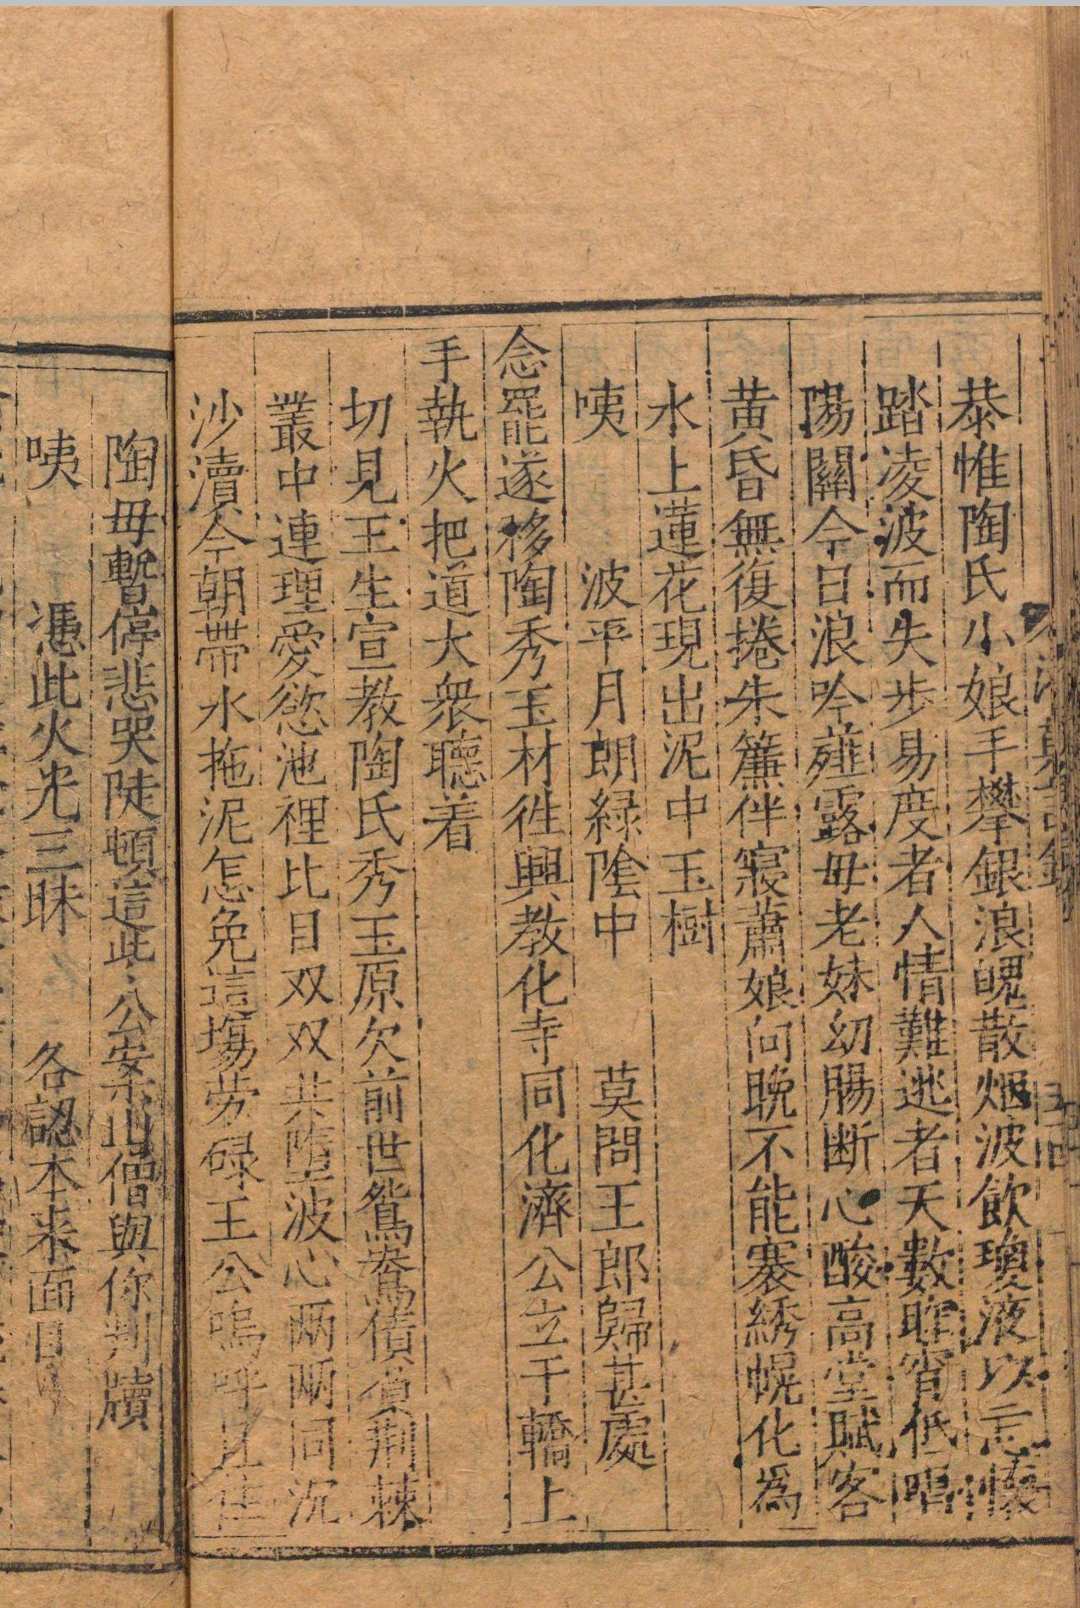 恭惟陶氏小娘手攀銀浪魄散烟波飲瓊液以忘懷
踏凌波而失步易度者人情難逃者天數昨宵低唱
陽關今日浪吟薤露毋老妹幼腸断心酸高堂賦客
黄昏無復捲朱簾伴寢蕭娘向晚不能褰綉幌化為
水上蓮花現出泥中玉樹
咦 波平月朗緑陰中 莫問王郎歸甚處
念罷遂移陶秀玉材徃興教化寺同化濟公立于轎上
手執火把道大衆聽着
切見王生宣教陶氏秀玉原欠前世鴛鴦債負荆棘
叢中連理愛慾池裡比目双双共墮波心兩兩同沉
沙瀆今朝帶水拖泥怎免這塲劳碌王公嗚呼且住
陶毋暫停悲哭陡頓這此公案山僧與你判牘
咦 憑此火光三昧 各認本来面目